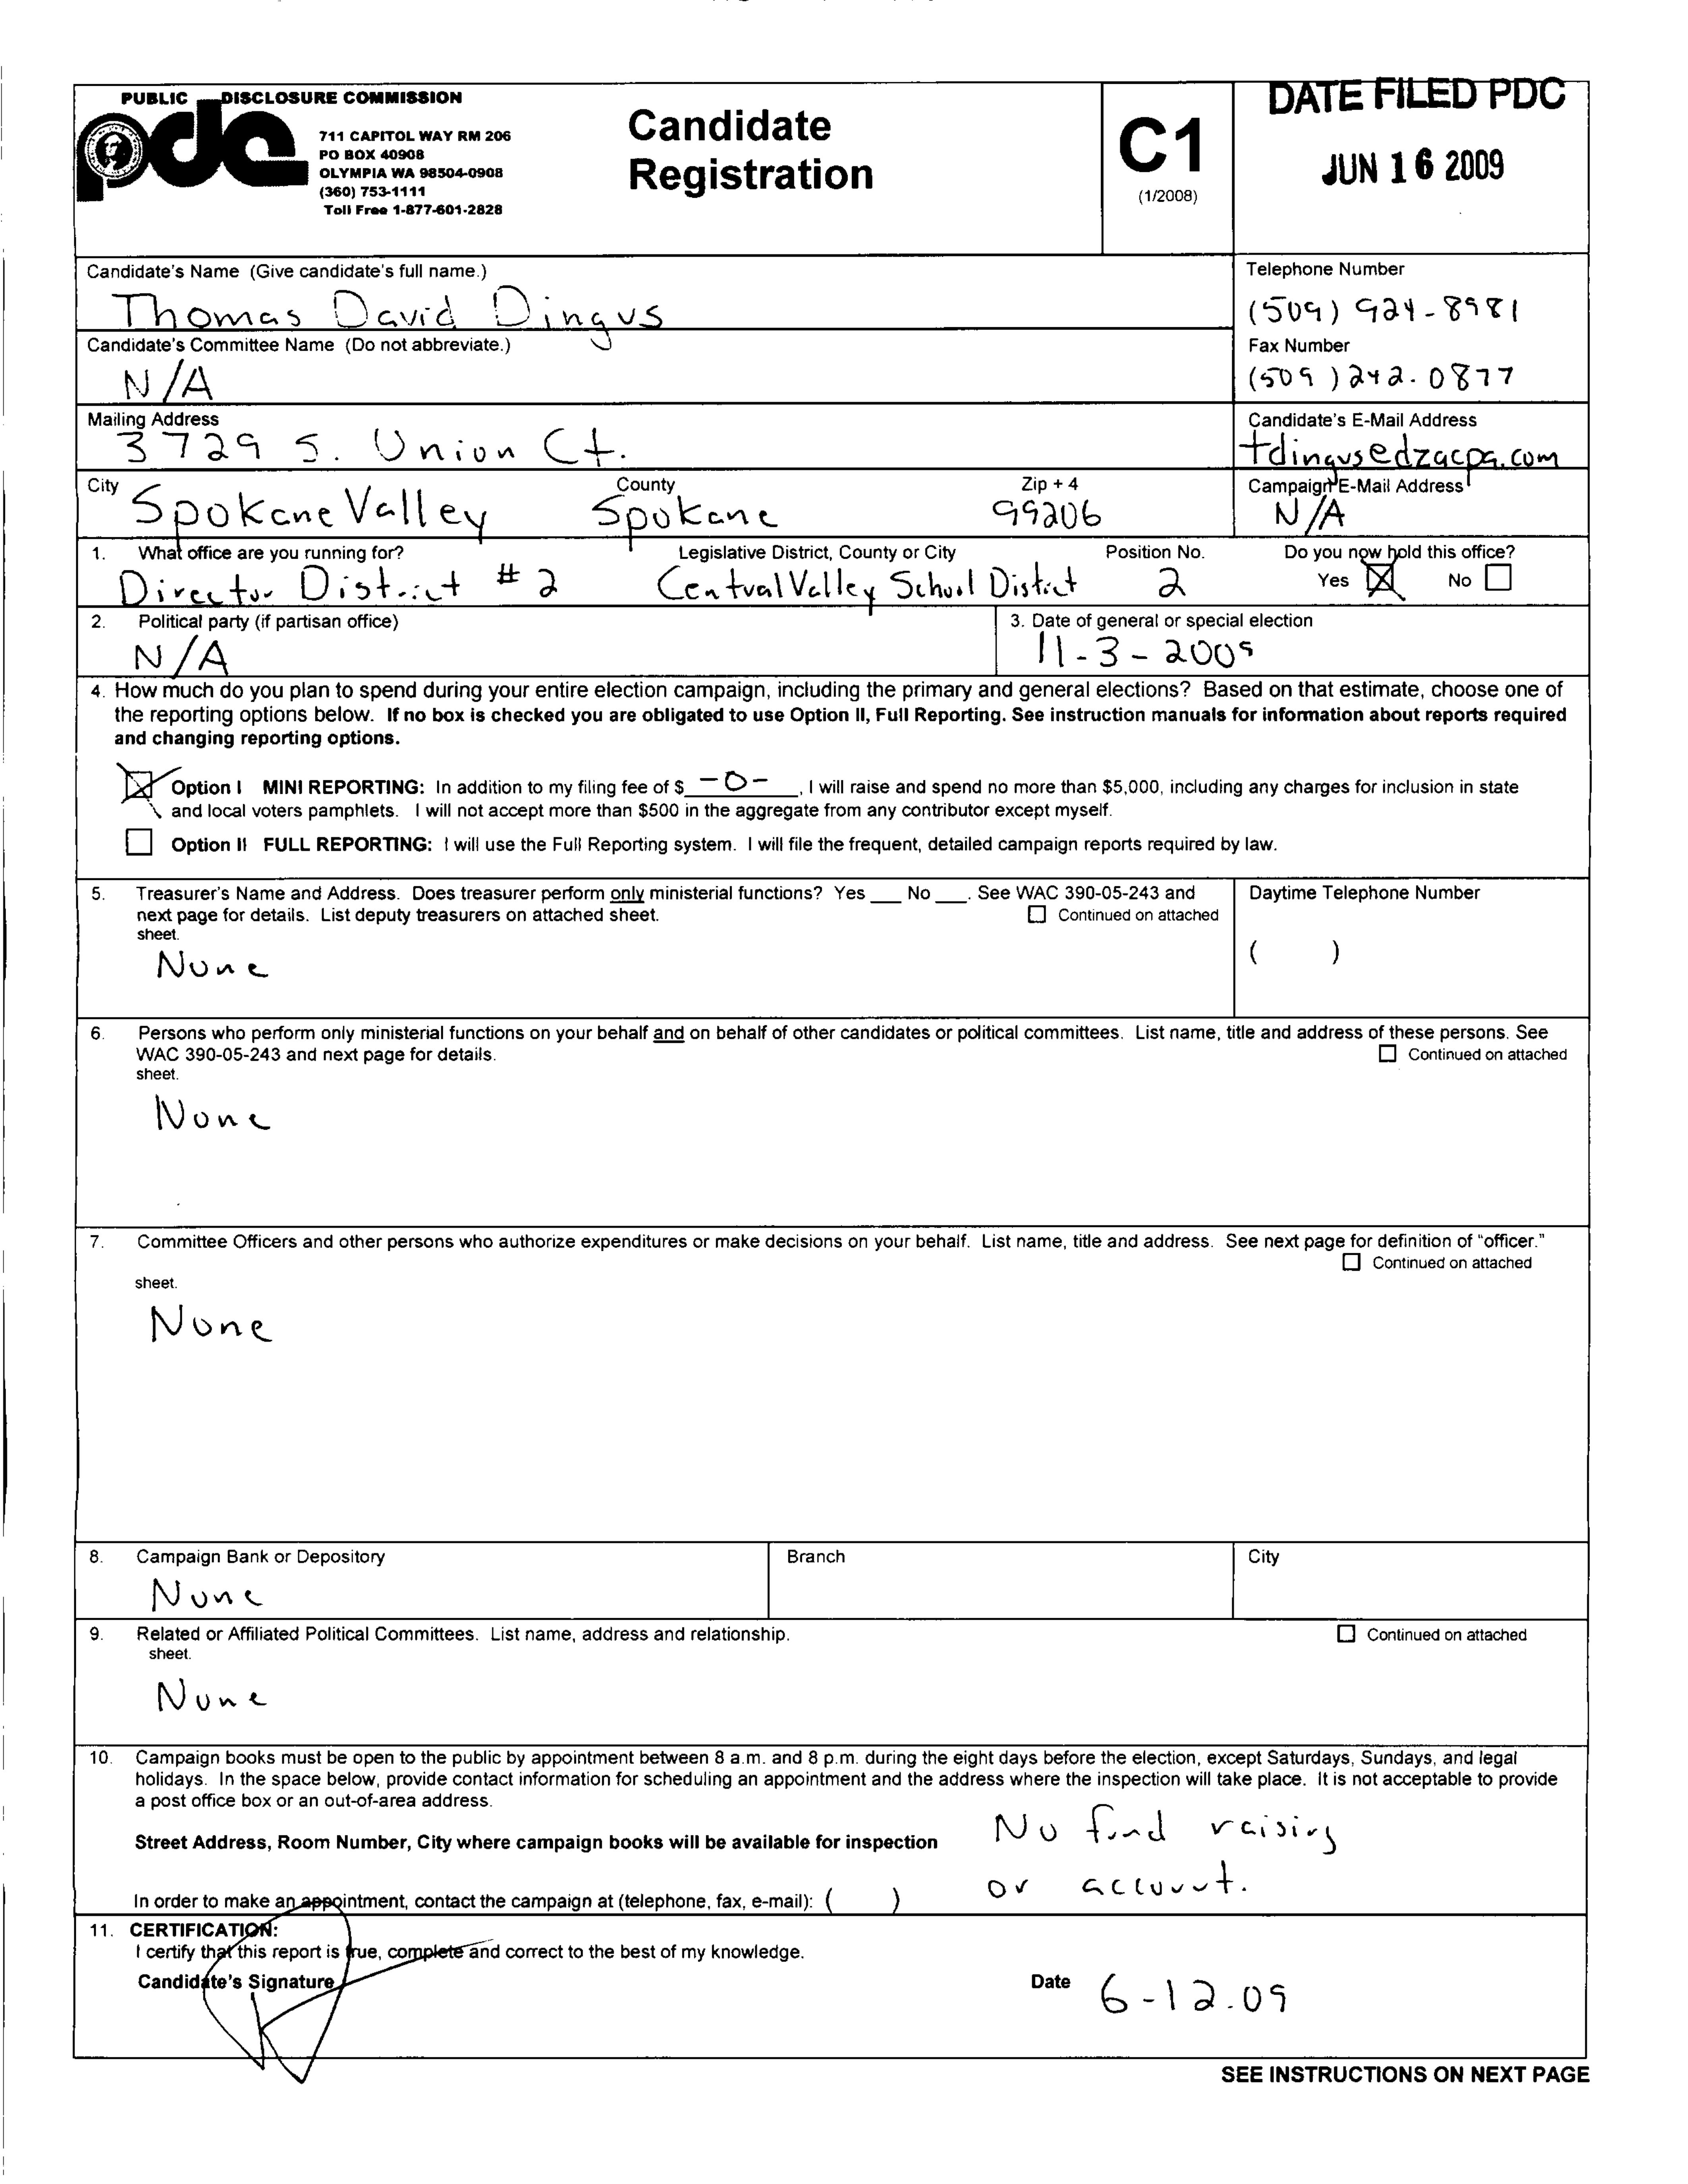 PUBLIC DISCLOSURE COMMISSION
pdc
711 CAPITOL WAY RM 206
PO BOX 40908
OLYMPIA WA 98504-0908
(360) 753-1111
Toll Free 1-877-601-2828
Candidate
Registration
C1
(1/2008)
DATE FILED PDC
JUN 16 2009
Candidate's Name (Give candidate's full name.)
Thomas David Dingus
Telephone Number
(509) 924-8981
Candidate's Committee Name (Do not abbreviate.)
N/A
Fax Number
(509) 242-0877
Mailing Address
3729 S. Union Ct.
Candidate's E-Mail Address
tdingus@dzacpa.com
City
Spokane Valley
County
Spokane
Zip + 4
99206
Campaign E-Mail Address
N/A
1. What office are you running for?
Director District #2
Legislative District, County or City
Central Valley School District
Position No.
2
Do you now hold this office?
Yes No
2. Political party (if partisan office)
N/A
3. Date of general or special election
11-3-2009
4. How much do you plan to spend during your entire election campaign, including the primary and general elections? Based on that estimate, choose one of
the reporting options below. If no box is checked you are obligated to use Option II, Full Reporting. See instruction manuals for information about reports required
and changing reporting options.
Option I MINI REPORTING: In addition to my filing fee of $ -0- , I will raise and spend no more than $5,000, including any charges for inclusion in state
and local voters pamphlets. I will not accept more than $500 in the aggregate from any contributor except myself.
Option II FULL REPORTING: I will use the Full Reporting system. I will file the frequent, detailed campaign reports required by law.
5. Treasurer's Name and Address. Does treasurer perform only ministerial functions? Yes ___ No ___. See WAC 390-05-243 and
next page for details. List deputy treasurers on attached sheet. Continued on attached
sheet.
None
Daytime Telephone Number
( )
6. Persons who perform only ministerial functions on your behalf and on behalf of other candidates or political committees. List name, title and address of these persons. See
WAC 390-05-243 and next page for details. Continued on attached
sheet.
None
7. Committee Officers and other persons who authorize expenditures or make decisions on your behalf. List name, title and address. See next page for definition of "officer."
Continued on attached
sheet.
None
8. Campaign Bank or Depository
None
Branch
City
9. Related or Affiliated Political Committees. List name, address and relationship. Continued on attached
sheet.
None
10. Campaign books must be open to the public by appointment between 8 a.m. and 8 p.m. during the eight days before the election, except Saturdays, Sundays, and legal
holidays. In the space below, provide contact information for scheduling an appointment and the address where the inspection will take place. It is not acceptable to provide
a post office box or an out-of-area address.
Street Address, Room Number, City where campaign books will be available for inspection
No fund raising
or account.
In order to make an appointment, contact the campaign at (telephone, fax, e-mail): ( )
11. CERTIFICATION:
I certify that this report is true, complete and correct to the best of my knowledge.
Candidate's Signature
Date 6-12-09
SEE INSTRUCTIONS ON NEXT PAGE